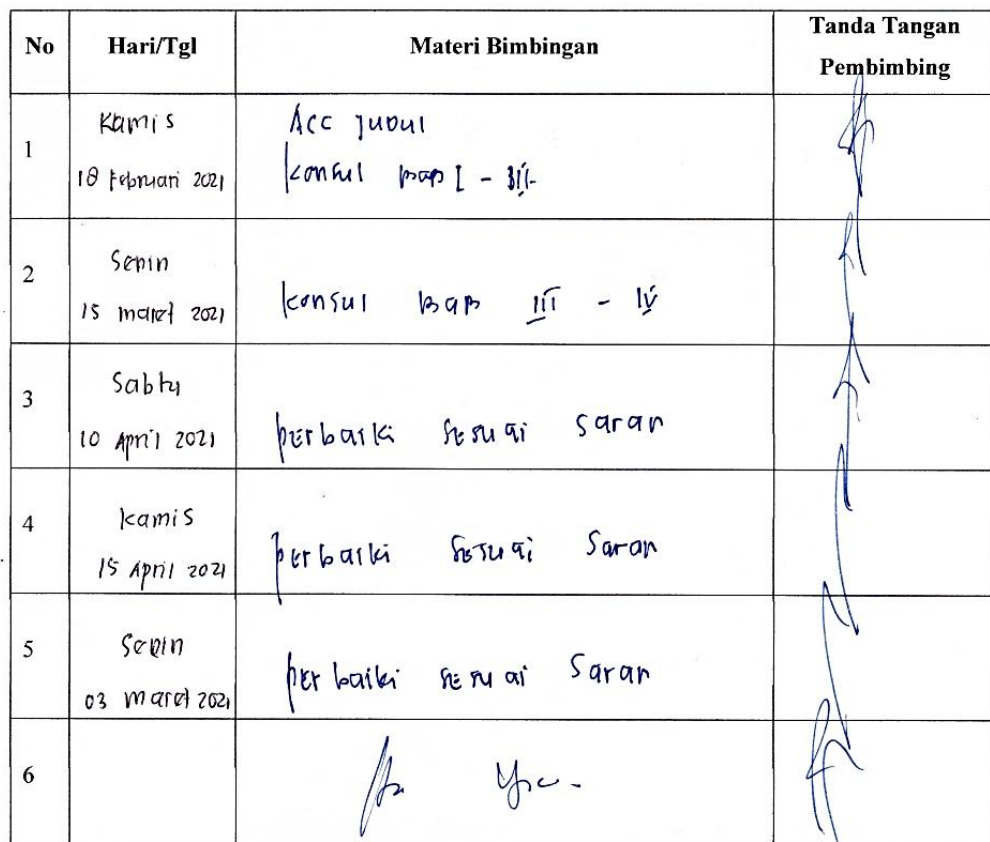 No Hari/Tgl Materi Bimbingan Tanda Tangan
Pembimbing
1 Kamis ACC Judul
18 Februari 2021 Konsul BAB I - III
2 Senin
15 maret 2021 Konsul BAB III - IV
3 Sabtu
10 April 2021 perbaiki sesuai saran
4 Kamis
15 April 2021 perbaiki sesuai saran
5 Senin
03 maret 2021 perbaiki sesuai saran
6